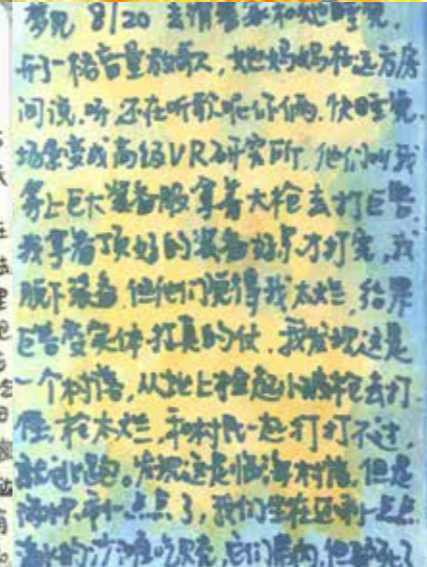 梦见 8/20 去情趣家和她睡觉.
开了一格音量放歌, 她妈妈在远方房
间说. 听 还在听歌呢你俩. 快睡觉.
场景变成高级VR研究所, 他们叫我
穿上巨大装备服拿着大枪去打巨兽.
我拿着顶好的装备好点才打完, 我
脱下装备. 但他们觉得我太烂. 结果
巨兽变实体打真的仗. 我发现这是
一个村落, 从地上捡起小破枪去打
怪, 枪太烂, 和村民一起打打不过.
就逃跑。发现这是临海村落, 但是
海水只剩一点点了, 我们坐在还剩一点点
海水的沙滩吃贝壳, 它们 肉, 但